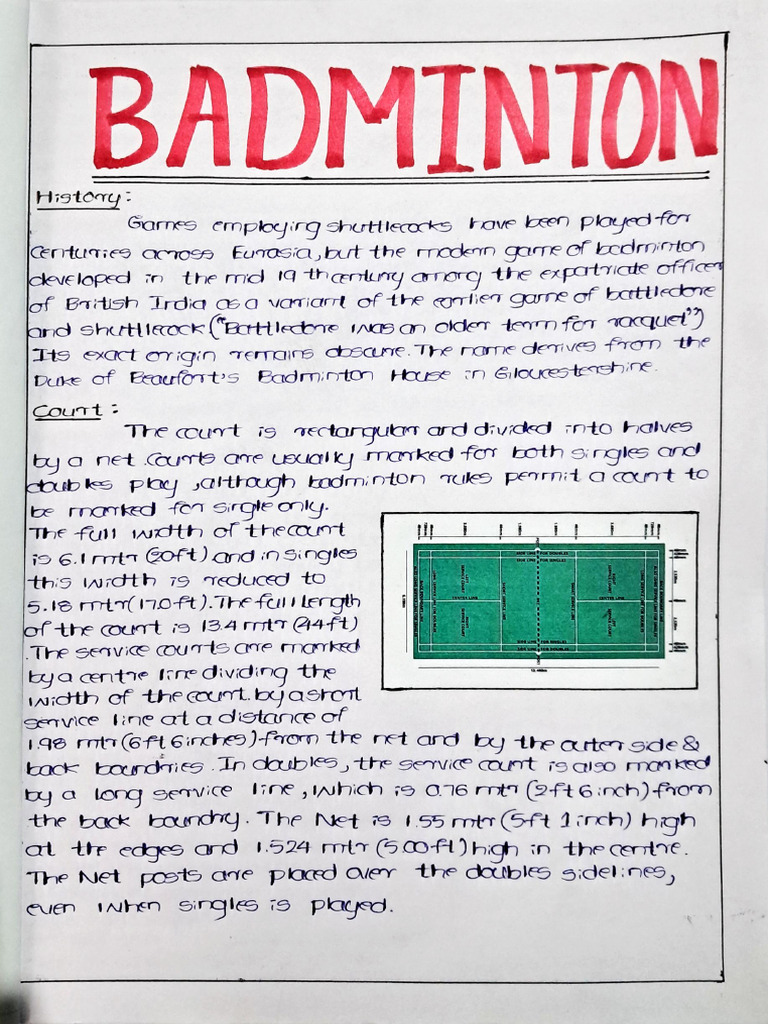 BADMINTON
History:
Games employing shuttlecocks have been played for
centuries across Eurasia, but the modern game of badminton
developed in the mid 19 th century among the expatriate officer
of British India as a variant of the earlier game of battledore
and shuttlecock ("Battledore was an older term for racquet")
Its exact origin remains obscure. The name derives from the
Duke of Beaufort's Badminton House in Gloucestershire.
Court:
The court is rectangular and divided into halves
by a net. Courts are usually marked for both singles and
doubles play, although badminton rules permit a court to
be marked for single only.
The full width of the court
is 6.1 mtr (20ft) and in singles
this width is reduced to
5.18 mtr (17.0 ft). The full length
of the court is 13.4 mtr (44 ft)
. The service courts are marked
by a centre line dividing the
width of the court. by a short
service line at a distance of
1.98 mtr (6 ft 6 inches) from the net and by the outer side &
back boundries. In doubles, the service court is also marked
by a long service line, which is 0.76 mtr (2 ft 6 inch) from
the back boundry. The Net is 1.55 mtr (5 ft 1 inch) high
at the edges and 1.524 mtr (5.00 ft) high in the centre.
The Net posts are placed over the doubles sidelines,
even when singles is played.
SIDE LINE FOR DOUBLES
SIDE LINE FOR SINGLES
CENTER LINE
CENTER LINE
SIDE LINE FOR SINGLES
SIDE LINE FOR DOUBLES